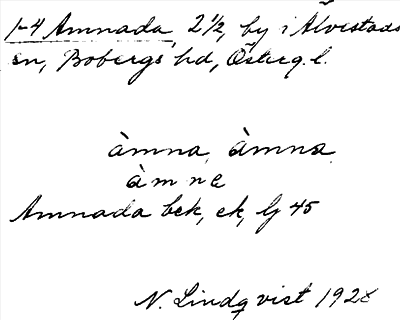 1-4 Amnada, 2 1/2, by i Alvestads
sn, Bobergs hd, Österg. l.
àmna, àmna
àmne
Amnada bck, ek, lj 45
N. Lindqvist 1928